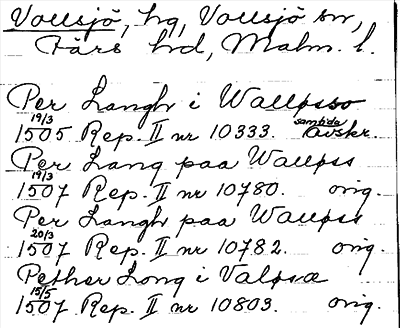 Vollsjö, hg, Vollsjö sn,
Färs hrd, Malm. l.
Per Langh i Wallpsso
19/3 1505 Rep. II nr 10333. samtida avskr.
Per Lang paa Wallpss
19/3 1507 Rep. II nr 10780. orig.
Per Langh paa Wallpss
20/3 1507 Rep. II nr 10782. orig.
Pether Long i Valpsæ
15/5 1507 Rep. II nr 10803. orig.